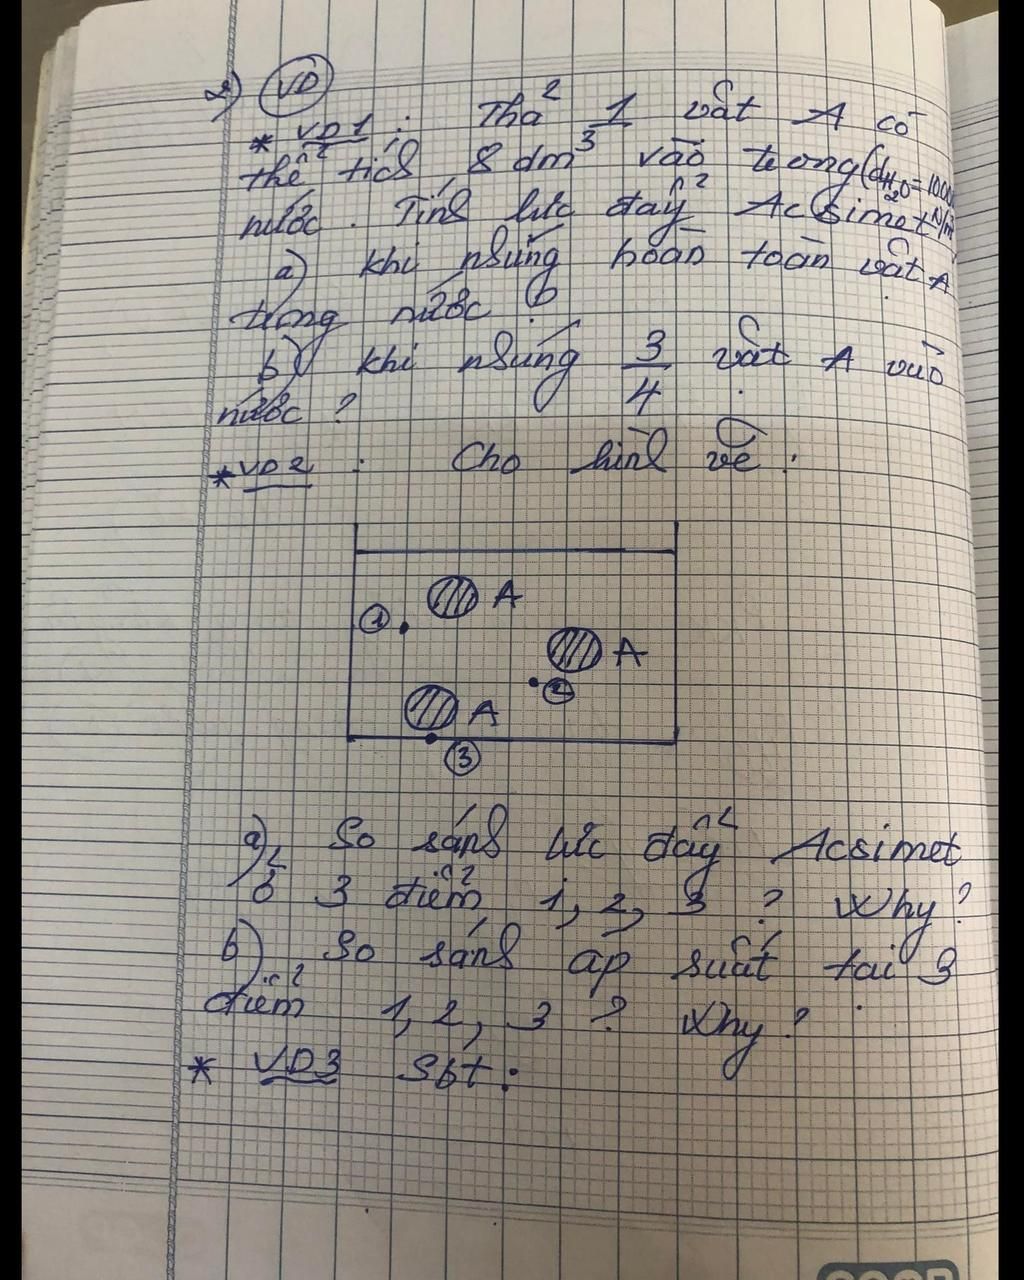 2) VD
* VD1 : Thả 1 vật A có
thể tích 8 dm³ vào trong (dH₂O = 10000
nước. Tính lực đẩy Acsimet N/m³
a) khi nhúng hoàn toàn vật A
trong nước ?
b) khi nhúng 3/4 vật A vào
nước ?
* VD2 : Cho hình vẽ :
A
① A
②
A
③
a) So sánh lực đẩy Acsimet
ở 3 điểm 1, 2, 3 ? Why ?
b) So sánh áp suất tại 3
điểm 1, 2, 3 ? Why ?
* VD3 Sbt :